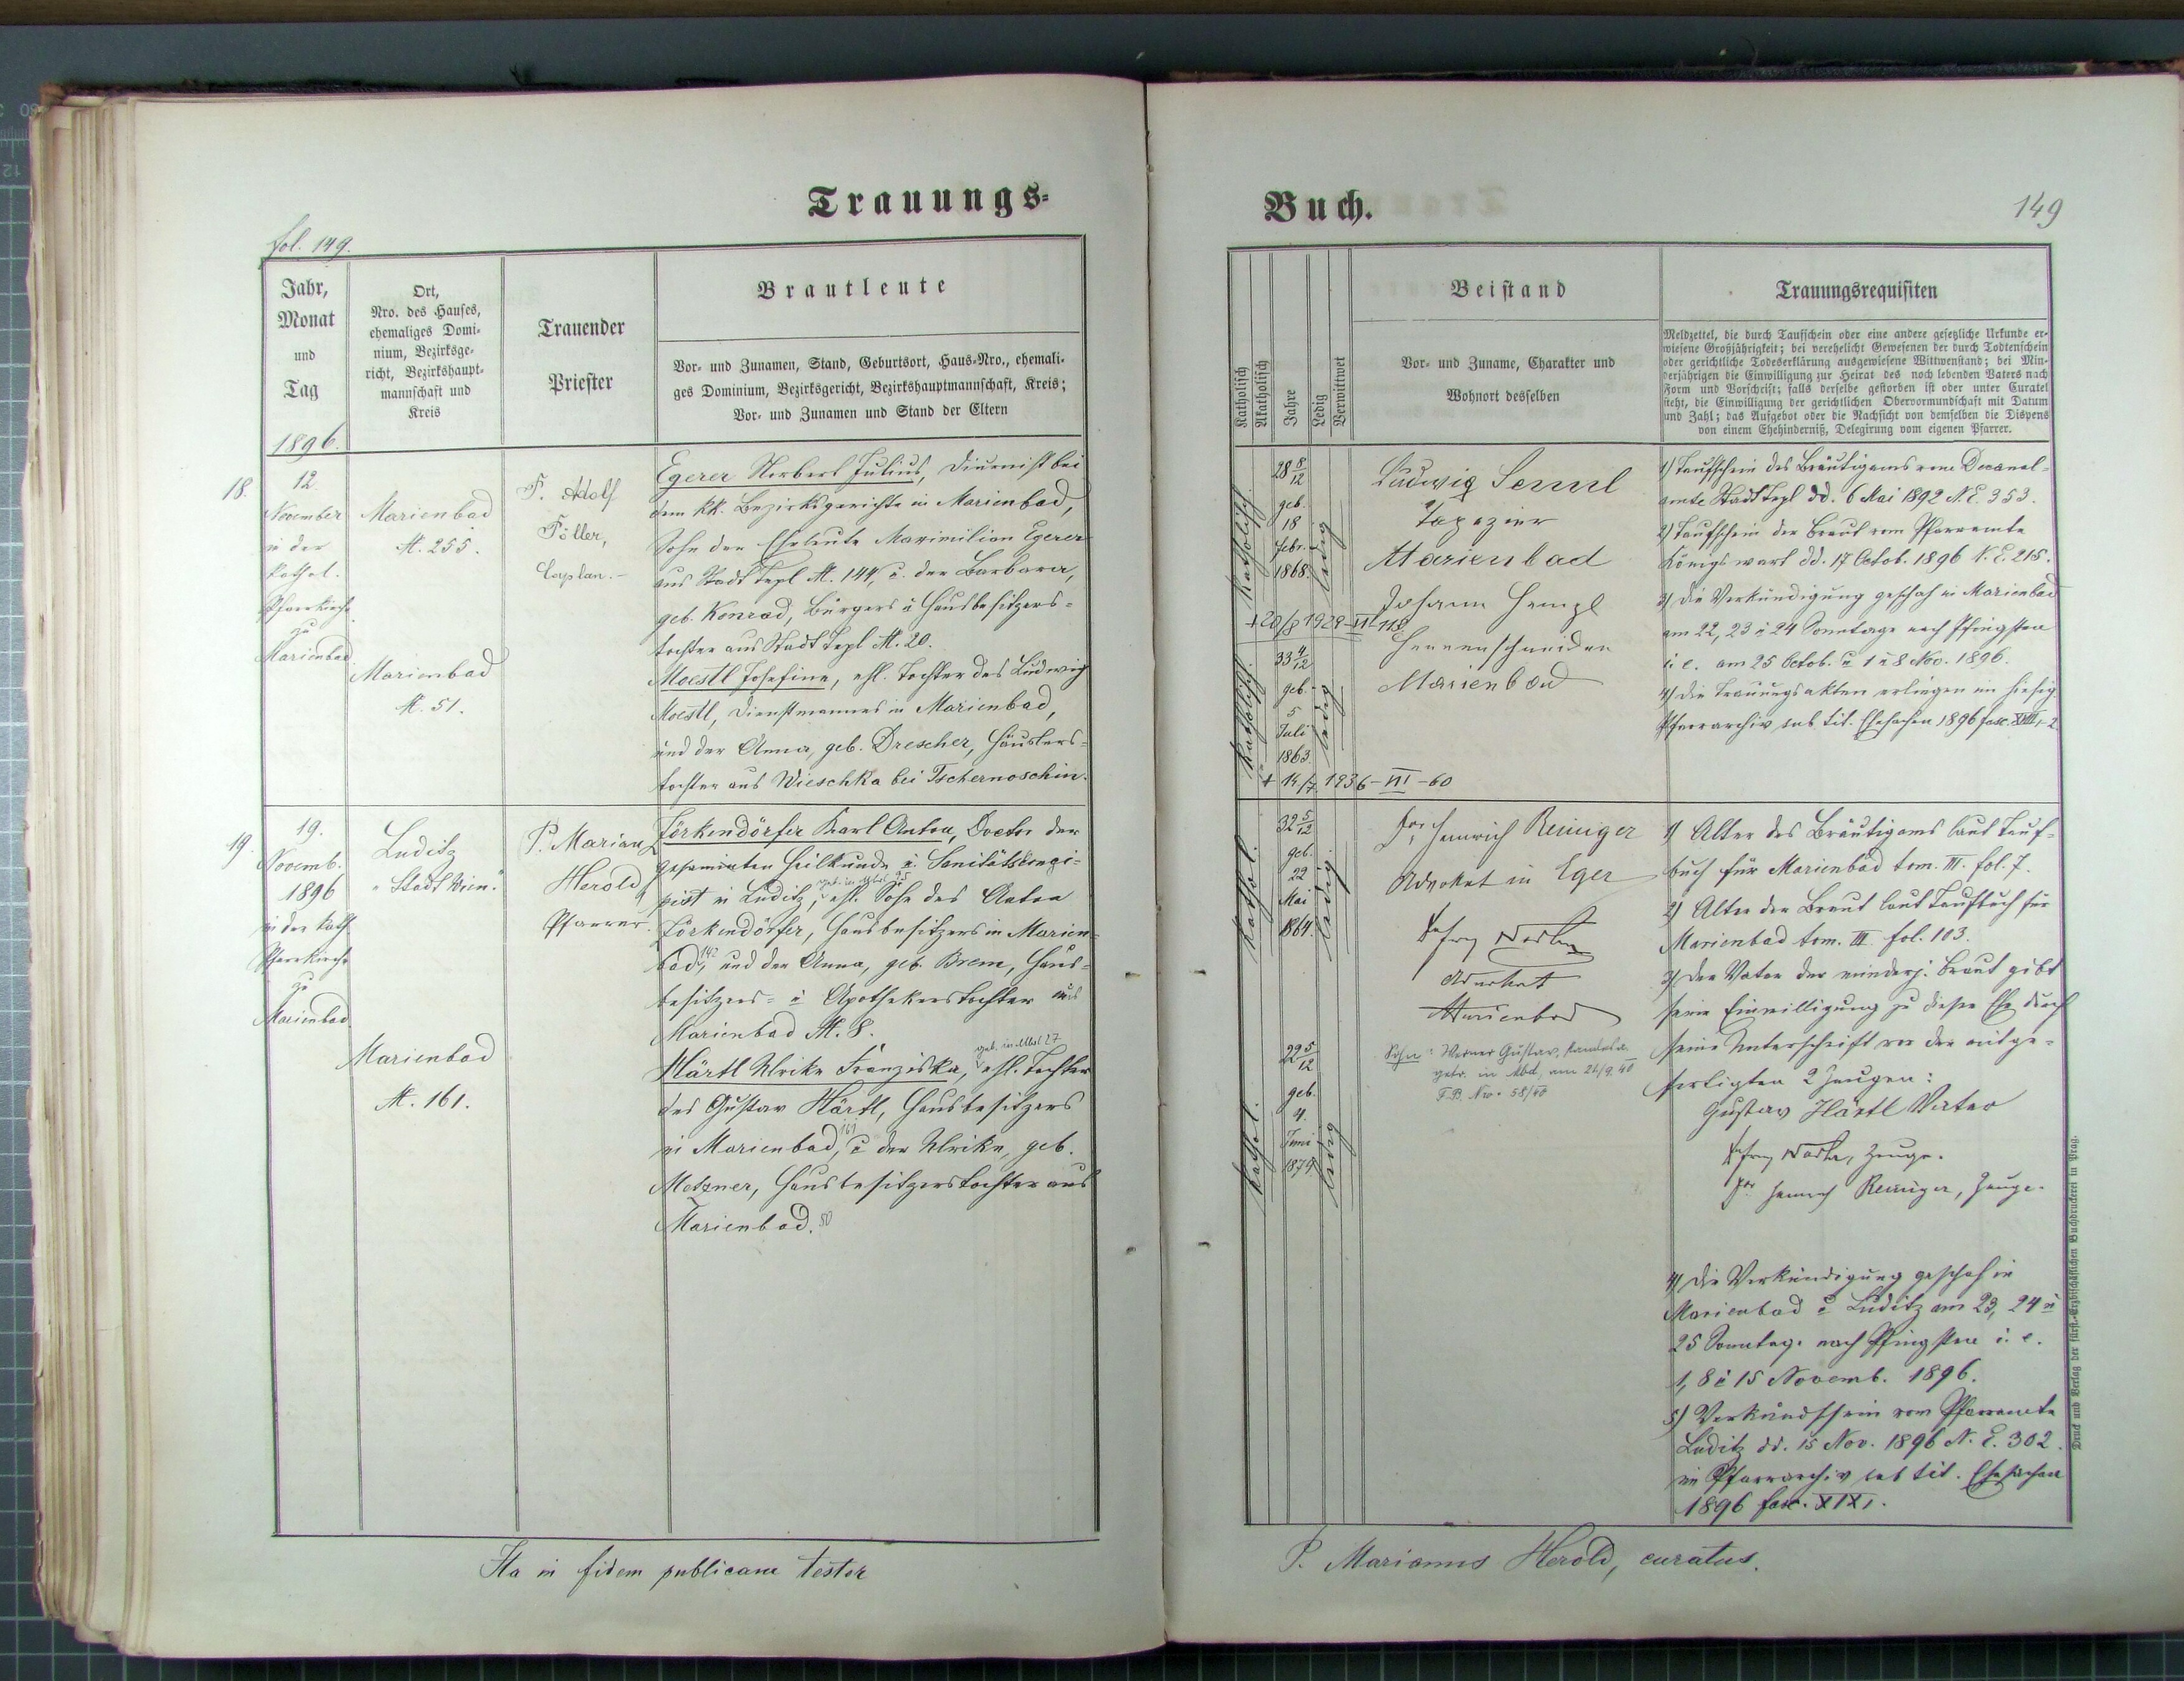 Trauungs-
fol. 149.
Jahr,
Monat
und
Tag
Ort,
Nro. des Hauses,
ehemaliges Domi-
nium, Bezirksge-
richt, Bezirkshaupt-
mannschaft und
Kreis
Trauender
Priester
Brautleute
Vor- und Zunamen, Stand, Geburtsort, Haus-Nro., ehemali-
ges Dominium, Bezirksgericht, Bezirkshauptmannschaft, Kreis;
Vor- und Zunamen und Stand der Eltern
1896.
18.
12.
November
in der
kathol.
Pfarrkirche
zu
Marienbad
Marienbad
N. 255.
Marienbad
N. 51.
P. Adolf
Föller,
Caplan.
Egerer Norbert Julius, Diurnist bei
dem kk. Bezirksgerichte in Marienbad,
Sohn der Eheleute Maximilian Egerer
aus Stadt Tepl N. 144, u. der Barbara,
geb. Konrad, Bürgers u Hausbesitzers-
tochter aus Stadt Tepl N. 20.
Moestl Josefine, ehl. Tochter des Ludwig
Moestl, Dienstmannes in Marienbad,
und der Anna, geb. Drescher, Häuslers-
tochter aus Wieschka bei Tschernoschin.
19.
19.
Novemb.
1896
in der kath
Pfarrkirche
zu
Marienbad
Luditz
"Stadt Wien."
Marienbad
N. 161.
P. Marian
Herold
Pfarrer.
Zörkendörfer Karl Anton, Doctor der
gesammten Heilkunde u. Sanitätsconci-
pist in Luditz, ehl. Sohn des Anton
Zörkendörfer, Hausbesitzers in Marien-
bad, 142 und der Anna, geb. Brem, Haus-
besitzers- u Apothekerstochter aus
Marienbad N. 8.
geb. in Mbd 27
Härtl Ulrike Franziska, ehl. Tochter
des Gustav Härtl, Hausbesitzers
in Marienbad, 161 u der Ulrike, geb.
Metzner, Hausbesitzerstochter aus
Marienbad. 80
Ita in fidem publicam testor
Buch.
149
Katholisch
Akatholisch
Jahre
Ledig
Verwittwet
Beistand
Vor- und Zuname, Charakter und
Wohnort desselben
Trauungsrequisiten
Meldzettel, die durch Taufschein oder eine andere gesetzliche Urkunde er-
wiesene Großjährigkeit; bei verehelicht Gewesenen der durch Todtenschein
oder gerichtliche Todeserklärung ausgewiesene Wittwenstand; bei Min-
derjährigen die Einwilligung zur Heirat des noch lebenden Vaters nach
Form und Vorschrift; falls derselbe gestorben ist oder unter Curatel
steht, die Einwilligung der gerichtlichen Obervormundschaft mit Datum
und Zahl; das Aufgebot oder die Nachsicht von demselben die Dispens
von einem Ehehinderniß, Delegirung vom eigenen Pfarrer.
katholisch.
28 8/12
geb.
18
Febr.
1868.
ledig
+20/8 1928-VI-118
katholisch.
33 4/12
geb.
5
Juli
1863.
ledig
+ 14/7. 1936-VII-60
Ludwig
Tapezier
Marienbad
Johann Hempl
Herrenschneider
Marienbad
1) Taufschein des Bräutigams vom Decanal-
amte Stadt Tepl dd. 6 Mai 1892 N.E. 353.
2) Taufschein der Braut vom Pfarramte
Königswart dd. 17 Octob. 1896 N.E. 215.
3) die Verkündigung geschah in Marienbad
am 22, 23 u 24 Sonntage nach Pfingsten
i. e. am 25 Octob. u 1 u 8 Nov. 1896.
4) die Trauungsakten erliegen im hiesig.
Pfarrarchiv sub tit. Ehesachen 1896 fasc. XVIII,-2.
kathol.
32 5/12
geb.
22
Mai
1864.
ledig
kathol.
22 5/12
geb.
4.
Juni
1874.
ledig
Jor Heinrich Reiniger
Advokat in Eger
Advokat
Marienbad
Sohn: Werner Gustav,
getr. in Mbd, am 21/9. 40
T.B. Nro. 58/40
1) Alter des Bräutigams laut Tauf-
buch für Marienbad tom. III. fol. 7.
2) Alter der Braut laut Taufbuch für
Marienbad tom. III fol. 103.
3) der Vater der minderj. Braut gibt
seine Einwilligung zu dieser Ehe durch
seine Unterschrift vor den mitge-
fertigten 2 Zeugen:
Gustav Härtl Vater
Zeuge.
Jor Heinrich Reiniger, Zeuge.
4) die Verkündigung geschah in
Marienbad u Luditz am 23, 24 u
25 Sonntag nach Pfingsten i. e.
1, 8 u 15 Novemb. 1896.
5) Verkündschein vom Pfarramte
Luditz dd. 15 Nov. 1896 N.E. 302.
im Pfarrarchiv sub tit. Ehesachen
1896 fasc. XIX,.
P. Marianus Herold, curatus.
Druck und Verlag der fürst.-Erzbischöflichen Buchdruckerei in Prag.